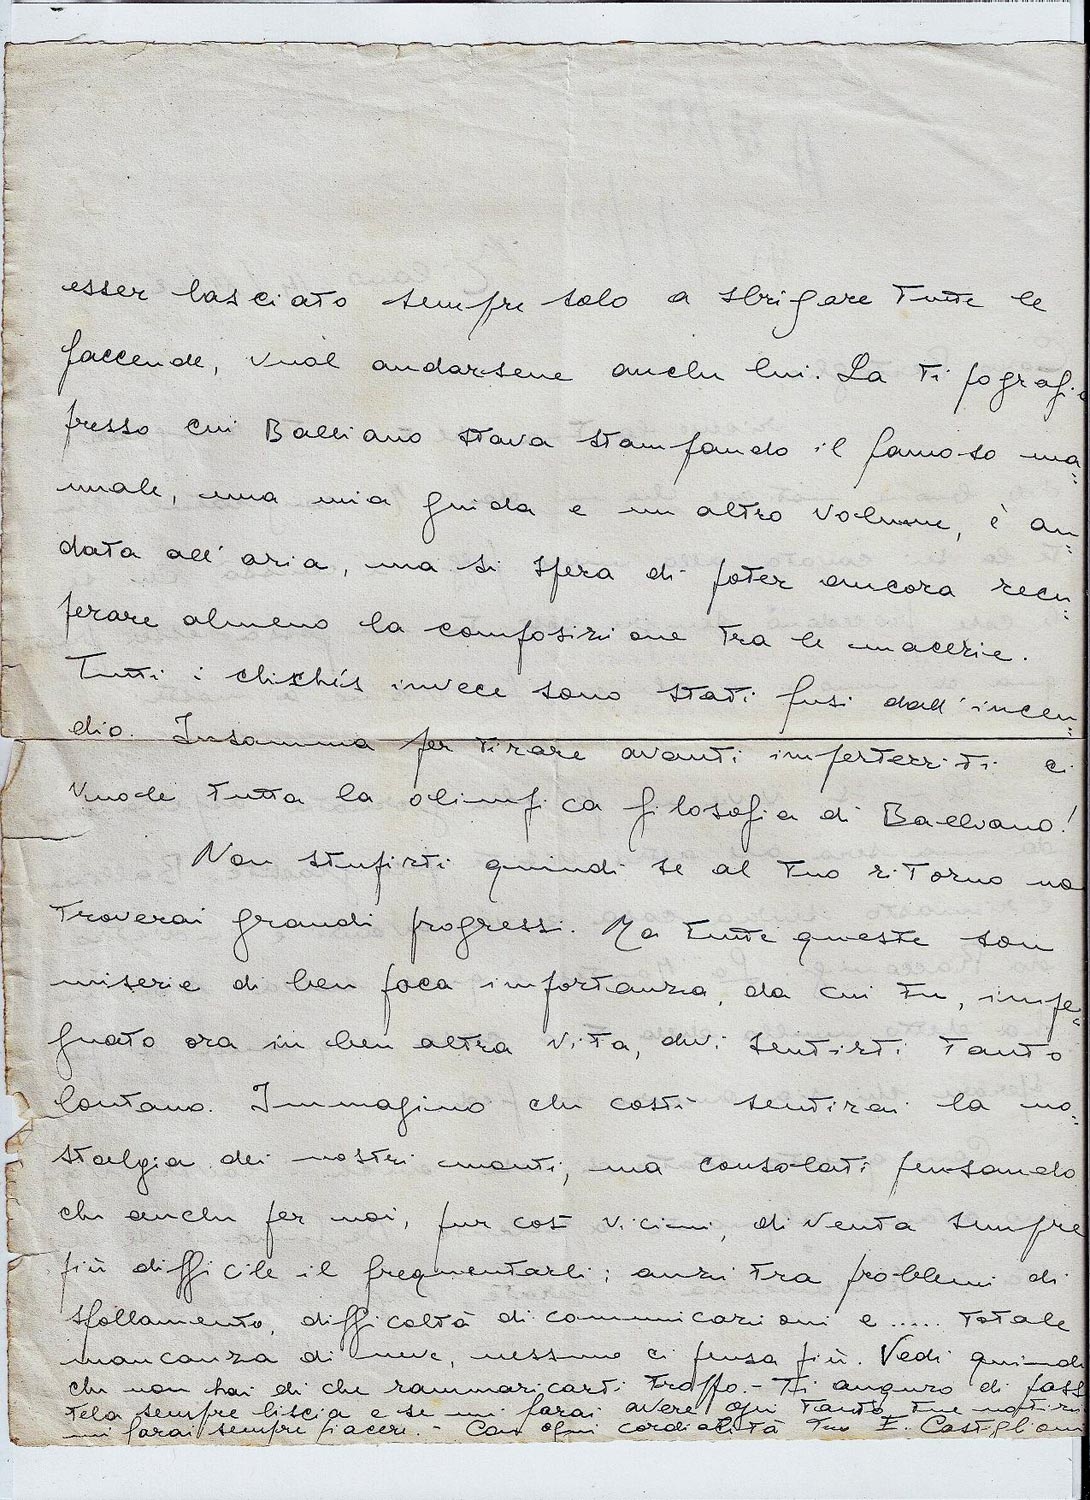 esser lasciato sempre solo a sbrigare tutte le
faccende, vuol andarsene anche lui. La tipografi
presso cui Balliano stava stampando il famoso ma=
nuale, una mia guida e un altro volume, è an=
data all'aria, ma si spera di poter ancora recu=
perare almeno la composizione tra le macerie.
Tutti i clichés invece sono stati fusi dall'incen=
dio. Insomma per tirare avanti imperterriti ci
vuole tutta la olimpica filosofia di Balliano!
Non stupirti quindi se al tuo ritorno no
troverai grandi progressi. Ma tutte queste son
miserie di ben poca importanza, da cui tu, impe=
gnato ora in ben altra vita, devi sentirti tanto
lontano. Immagino che costì sentirai la no=
stalgia dei nostri monti, ma consolati pensando
che anche per noi, pur così vicini, diventa sempre
più difficile il frequentarli; anzi tra problemi di
sfollamento, difficoltà di comunicazioni e ..... totale
mancanza di neve, nessuno ci pensa più. Vedi quindi
che non hai di che rammaricarti troppo.- Ti auguro di pass
tela sempre liscia e se mi farai avere ogni tanto tue notizi
mi farai sempre piacere. - Con ogni cordialità tuo E. Castiglioni